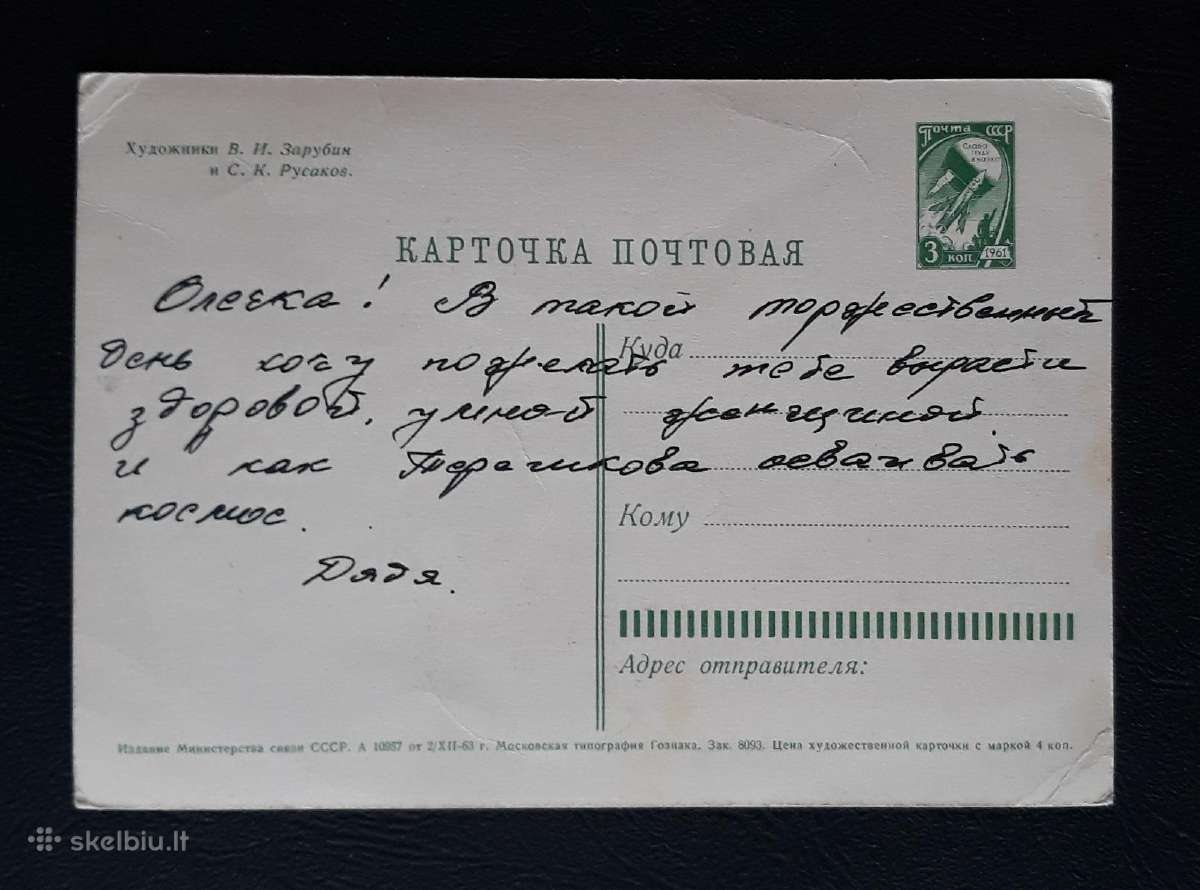 Художники В. И. Зарубин
и С. К. Русаков.
Почта СССР
Слава
труду
и науке!
3 коп
1961
КАРТОЧКА ПОЧТОВАЯ
Олечка! В такой торжественный
день хочу пожелать тебе вырасти
здоровой, умной женщиной.
и как Терешкова осваивать
космос.
Дядя.
Куда
Кому
Адрес отправителя:
Издание Министерства связи СССР. А 10987 от 2/XII-63 г. Московская типография Гознака. Зак. 8093. Цена художественной карточки с маркой 4 коп.
skelbiu.lt